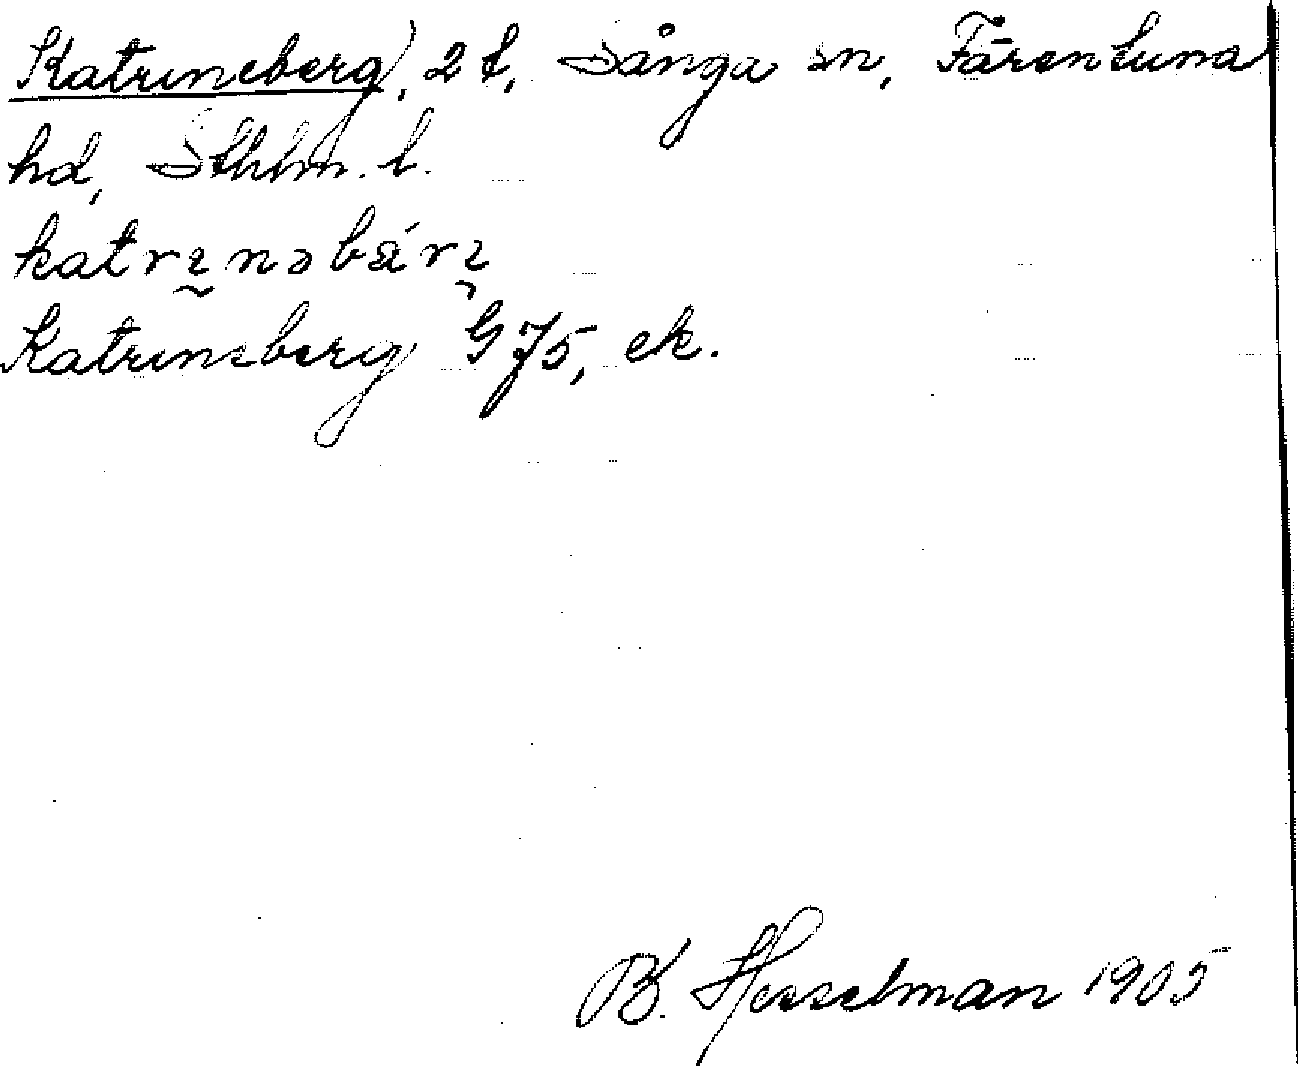 Katrineberg, 2 t, Sånga sn, Färentuna
hd, Sthlm. l.
katrɪnəbárɪ
Katrineberg G 75, ek.
B. Hesselman 1905